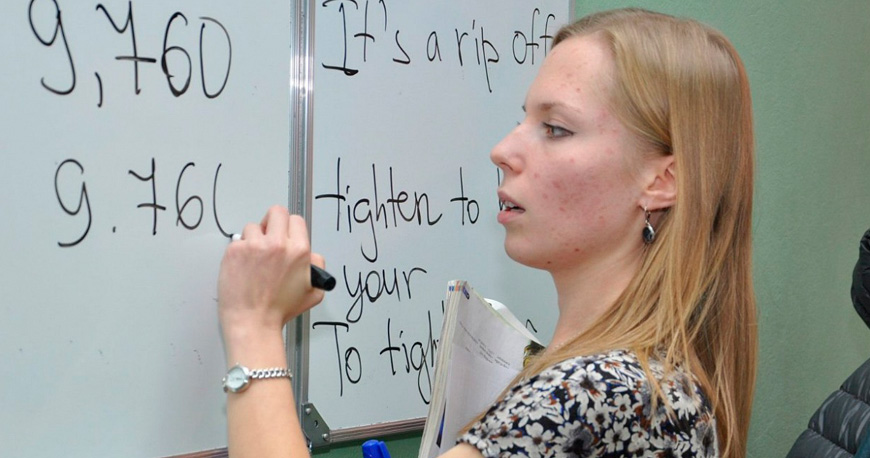 9,760
9.760
It's a rip off
tighten to
your
To tigh